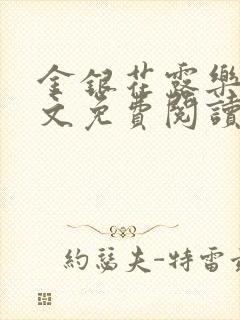 金銀花露樂
文免費閱讀
約瑟夫-特雷